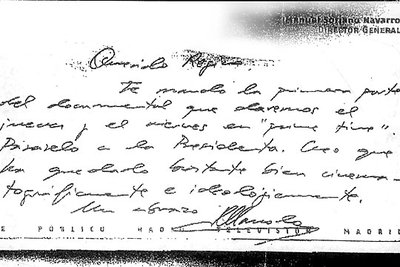 Manuel Soriano Navarro
DIRECTOR GENERAL
Querido Regino:
Te mando la primera parte
del documental que daremos el
jueves y el viernes en "prime time".
Pásaselo a la Presidenta. Creo que
ha quedado bastante bien cinema-
tográficamente e ideológicamente.
Un abrazo
E PÚBLICO RAD TELEVISIÓN MADRID